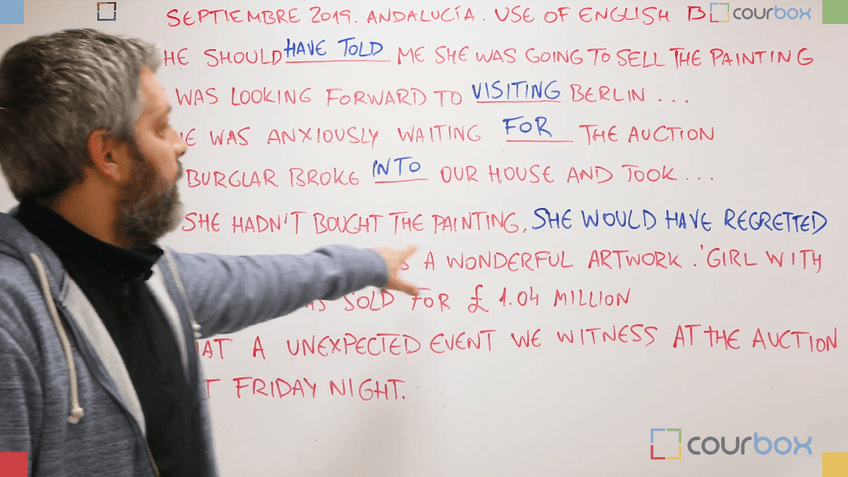 SEPTIEMBRE 2019. ANDALUCÍA. USE OF ENGLISH B courbox
HE SHOULD HAVE TOLD ME SHE WAS GOING TO SELL THE PAINTING
WAS LOOKING FORWARD TO VISITING BERLIN ...
WAS ANXIOUSLY WAITING FOR THE AUCTION
BURGLAR BROKE INTO OUR HOUSE AND TOOK ...
SHE HADN'T BOUGHT THE PAINTING, SHE WOULD HAVE REGRETTED
A WONDERFUL ARTWORK. 'GIRL WITH
SOLD FOR £ 1.04 MILLION
A UNEXPECTED EVENT WE WITNESS AT THE AUCTION
FRIDAY NIGHT.
courbox